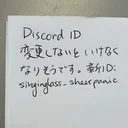 Discord ID
変更しないといけなく
なりそうです。新ID:
singinglass_sheerpanic